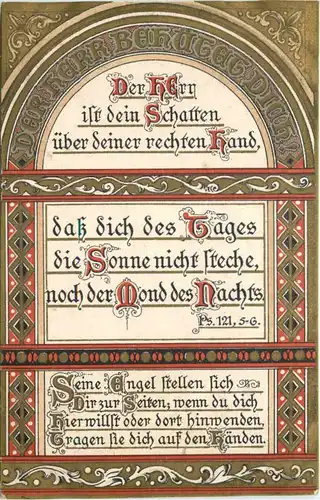 DER HERR BEHÜTET DICH
Der HErr
ist dein Schatten
über deiner rechten Hand,
daß dich des Tages
die Sonne nicht steche,
noch der Mond des Nachts.
Ps. 121, 5-6.
Seine Engel stellen sich
Dir zur Seiten; wenn du dich
Hier willst oder dort hinwenden,
Tragen sie dich auf den Händen.